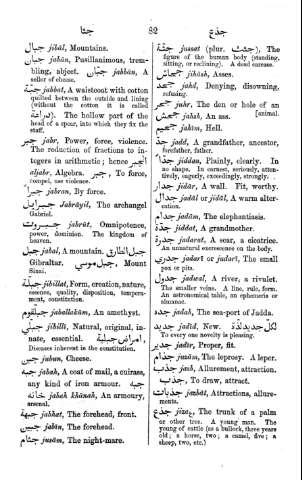 جثا 82 جذع
جبال jibál, Mountains.
جبان jabán, Pusillanimous, trem-
bling, abject. جبّان jabbán, A
seller of cheese.
jabbat, A waistcoat with cotton
quilted between the outside and lining
(without the cotton it is called
دراعة) The hollow part of the
head of a spear, into which they fix the
staff.
جبر jabr, Power, force, violence.
The reduction of fractions to in-
tegers in arithmetic; hence الجبر
aljabr, Algebra. , To force,
compel, use violence.
جبرًا jabran, By force.
جبرايل Jabráyil, The archangel
Gabriel.
جبروت jabrút, Omnipotence,
power, dominion. The kingdom of
heaven.
جبل jabal, A mountain. جبل الطارق
Gibraltar. جبل موسى, Mount
Sinai.
جبلة jibillat, Form, creation, nature,
essence, quality, disposition, tempera-
ment, constitution.
jabalkúm, An amethyst.
جبلي jibillí, Natural, original, in-
nate, essential. امراض جبلية
Diseases inherent in the constitution.
جبن jubun, Cheese.
جبه jabah, A coat of mail, a cuirass,
any kind of iron armour. جبه
خانه jabah khánah, An armoury,
arsenal.
جبهة jabhat, The forehead, front.
جبين jabín, The forehead.
جثام jusám, The night-mare.
جثة jussat (plur. جثث), The
figure of the human body (standing,
sitting, or reclining). A dead carcase.
جحاش jihásh, Asses.
جحد jahd, Denying, disowning,
refusing.
جحر jahr, The den or hole of an
[animal.
جحش jahsh, An ass.
جحيم jahím, Hell.
جد jadd, A grandfather, ancestor,
forefather, father.
جدًا jiddan, Plainly, clearly. In
no shape. In earnest, seriously, atten-
tively, eagerly, exceedingly, strongly.
جدار jidár, A wall. Fit, worthy.
جدال jadál or jidál, A warm alter-
cation.
جدام judám, The elephantiasis.
جدة jiddat, A grandmother.
جدرة jadarat, A scar, a cicatrice.
An unnatural excrescence on the body.
جدري jadarí or judarí, The small
pox or pits.
جدول jadwal, A river, a rivulet.
The smaller veins. A line, rule, form.
An astronomical table, an ephemeris or
almanac.
جده jadah, The sea-port of Judda.
جديد jadíd, New. لكل جديد لذة
To every one novelty is pleasing.
جدير jadír, Proper, fit.
جذام juzám, The leprosy. A leper.
جذب jazb, Allurement, attraction.
جذب, To draw, attract.
جذبات jazbát, Attractions, allure-
ments.
جذع jizę, The trunk of a palm
or other tree. A young man. The
young of cattle (as a bullock, three years
old; a horse, two; a camel, five; a
sheep, two, etc.)